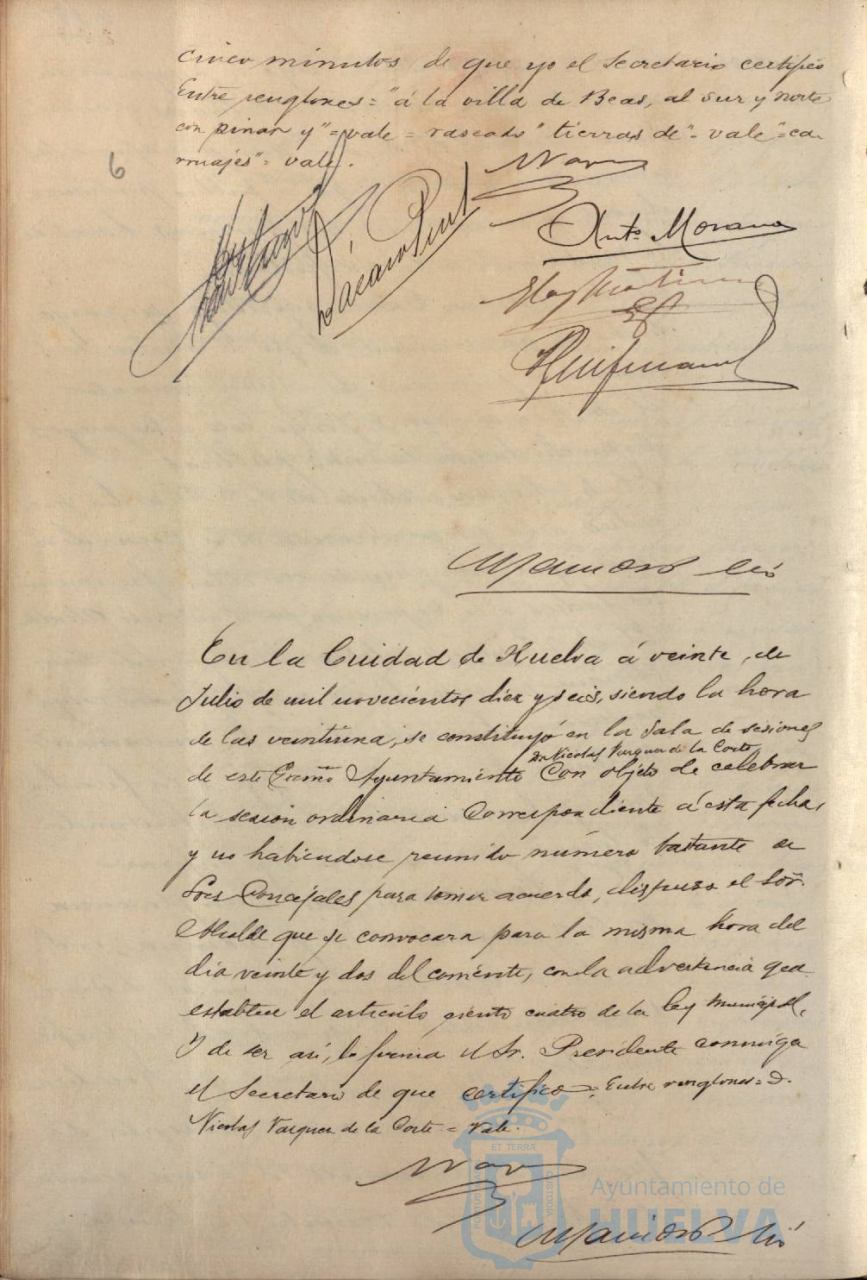 cinco minutos de que yo el Secretario certifico
Entre renglones="á la villa de Beas, al sur y norte
con pinar y"=vale=rascado "tierras de"=vale="ca-
rruajes"=vale.
6
Anto. Morano
En la Ciudad de Huelva á veinte, de
Julio de mil novecientos diez y seis, siendo la hora
de las veintiuna, se constituyó en la Sala de sesiones
Dn Nicolas Vazquez de la Corte
de este Excmo Ayuntamiento con objeto de celebrar
la sesion ordinaria correspondiente á esta fecha,
y no habiendose reunido número bastante de
Sres Concejales para tomar acuerdo, dispuso el Sor.
Alcalde que se convocara para la misma hora del
dia veinte y dos del corriente, con la advertencia que
establece el articulo ciento cuatro de la ley municipal.
Y de ser asi, lo firma el Sr. Presidente conmigo
el Secretario de que certifico = Entre renglones = D.
Nicolas Vazquez de la Corte = Vale.
Ayuntamiento de
HUELVA